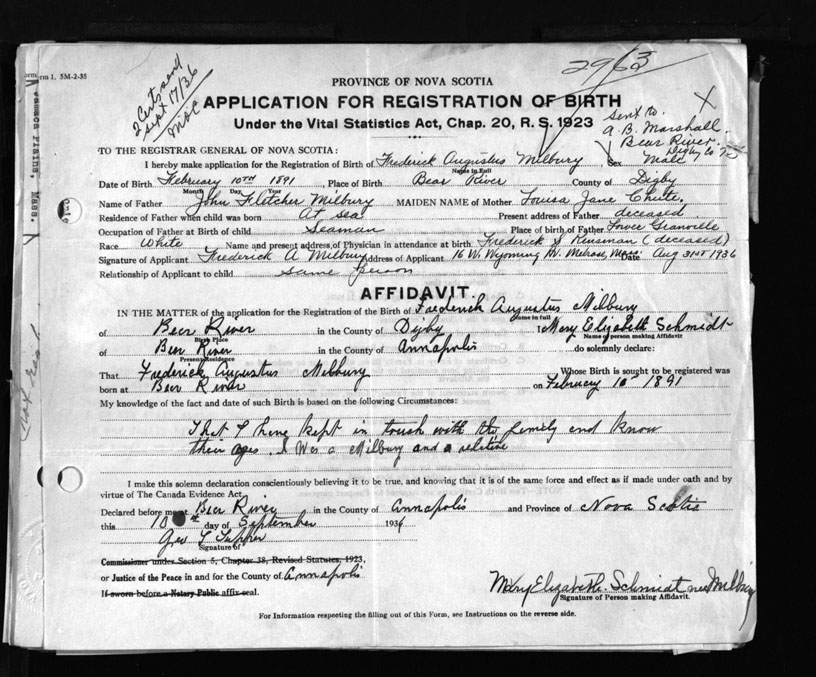 Form 1. 5M-2-35
2963
2 Certs send
Sept 17/36
PROVINCE OF NOVA SCOTIA
APPLICATION FOR REGISTRATION OF BIRTH
Under the Vital Statistics Act, Chap. 20, R. S. 1923
Sent to.
A. B. Marshall.
Bear River.
Digby Co
TO THE REGISTRAR GENERAL OF NOVA SCOTIA:
I hereby make application for the Registration of Birth of Frederick Augustus Milbury Sex Male
Name in Full
Date of Birth February 10TH 1891 Place of Birth Bear River County of Digby
Month Day Year
Name of Father John Fletcher Milbury MAIDEN NAME of Mother Louisa Jane Chute.
Residence of Father when child was born At sea Present address of Father deceased
Occupation of Father at Birth of child Seaman Place of birth of Father Lower Granville
Race White Name and present address of Physician in attendance at birth Frederick S (deceased)
Signature of Applicant Frederick A Milbury Address of Applicant 16 W. Wyoming Av. Melrose, Mass Date Aug 31st 1936
Relationship of Applicant to child same person
AFFIDAVIT.
IN THE MATTER of the application for the Registration of the Birth of Frederick Augustus Milbury
Name in full
of Bear River in the County of Digby I Mary Elizabeth Schmidt
Birth Place Name of person making Affidavit
of Bear River in the County of Annapolis do solemnly declare:
Present Residence
That Frederick Augustus Milbury Whose Birth is sought to be registered was
born at Bear River on February 10th 1891
My knowledge of the fact and date of such Birth is based on the following Circumstances:
That I have kept in touch with the family and know
their ages. I was a Milbury and a relative
I make this solemn declaration conscientiously believing it to be true, and knowing that it is of the same force and effect as if made under oath and by
virtue of The Canada Evidence Act.
Declared before me at Bear River in the County of Annapolis and Province of Nova Scotia
this 10 th day of September 1936
Geo L Tupper
Signature of
Commissioner under Section 5, Chapter 38, Revised Statutes, 1923,
or Justice of the Peace in and for the County of Annapolis
If sworn before a Notary Public affix seal.
Mary Elizabeth Schmidt nee Milbury
Signature of Person making Affidavit.
For Information respecting the filling out of this Form, see Instructions on the reverse side.
Jamaca Plains, Mass.